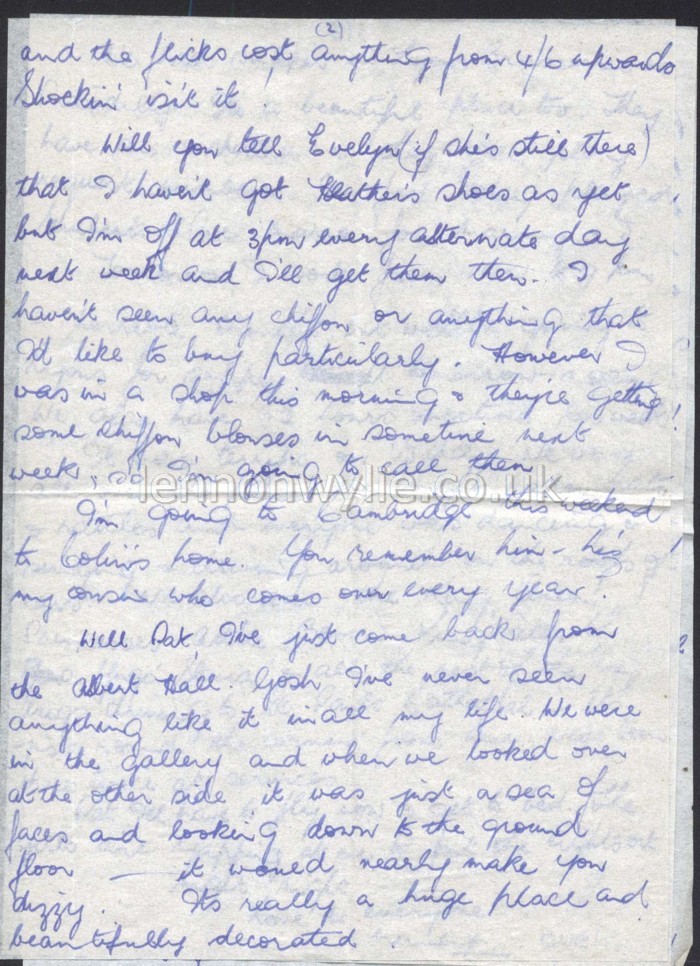 (2)
and the flicks cost anything from 4/6 upwards
Shockin' isn't it!
Will you tell Evelyn (if she's still there)
that I haven't got Heather's shoes as yet
but I'm off at 3pm every alternate day
next week and I'll get them then. I
haven't seen any chiffon or anything that
I'd like to buy particularly. However I
was in a shop this morning & they're getting
some chiffon blouses in sometime next
week, so I'm going to call then
lennonwylie.co.uk
I'm going to Cambridge this weekend
to Colin's home. You remember him - he's
my cousin who comes over every year.
Well Pat, I've just come back from
the Albert Hall. Gosh I've never seen
anything like it in all my life. We were
in the gallery and when we looked over
at the other side it was just a sea of
faces and looking down to the ground
floor — it would nearly make you
dizzy. Its really a huge place and
beautifully decorated.